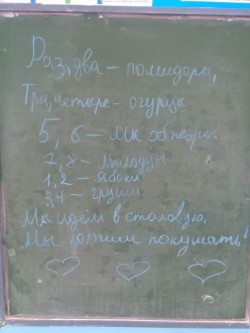 Раз, два – помидоры,
Три, четыре – огурцы
5, 6 – мы обжоры
7, 8 – молодцы
1, 2 – яблоки
3,4 – груши
Мы идём в столовую,
Мы хотим покушать!